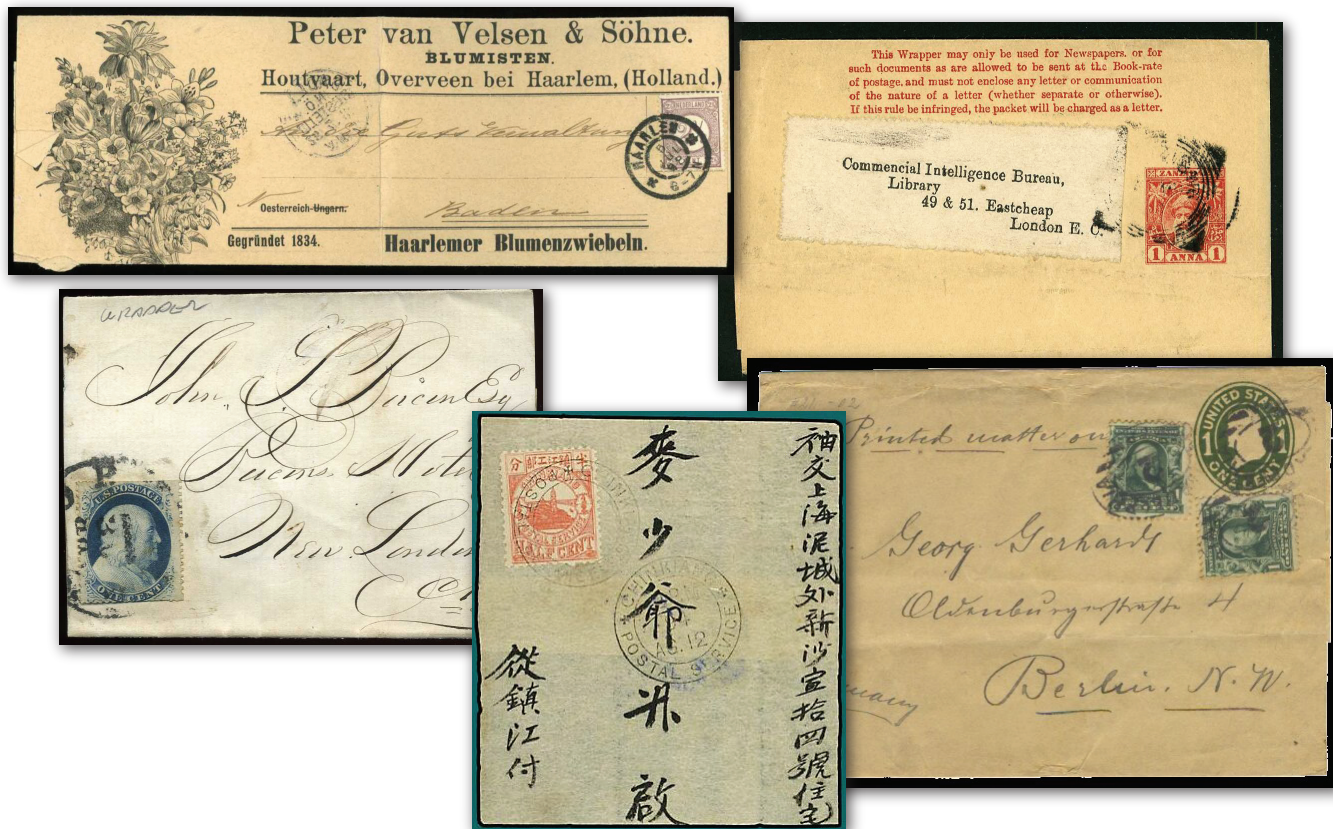 Peter van Velsen & Söhne.
BLUMISTEN.
Houtvaart, Overveen bei Haarlem, (Holland.)
NEDERLAND
HAARLEM
6-7
Oesterreich-Ungarn.
Baden
Gegründet 1834.
Haarlemer Blumenzwiebeln.
This Wrapper may only be used for Newspapers, or for
such documents as are allowed to be sent at the Book-rate
of postage, and must not enclose any letter or communication
of the nature of a letter (whether separate or otherwise).
If this rule be infringed, the packet will be charged as a letter.
Commencial Intelligence Bureau,
Library
49 & 51. Eastcheap
London E. C.
1 ANNA 1
WRAPPER
John S
New London
U.S. POSTAGE
ONE CENT
袖交上海泥城外新沙宣拾四號住宅
麥少爺升啟
從鎮江付
分
鎮江工部
HALF CENT
CHINKIANG
AG.12
POSTAL SERVICE
Printed matter on
UNITED STATES
1 1
ONE CENT
Georg Gerhardt
Oldenburgerstraße 4
Berlin. N. W.
many